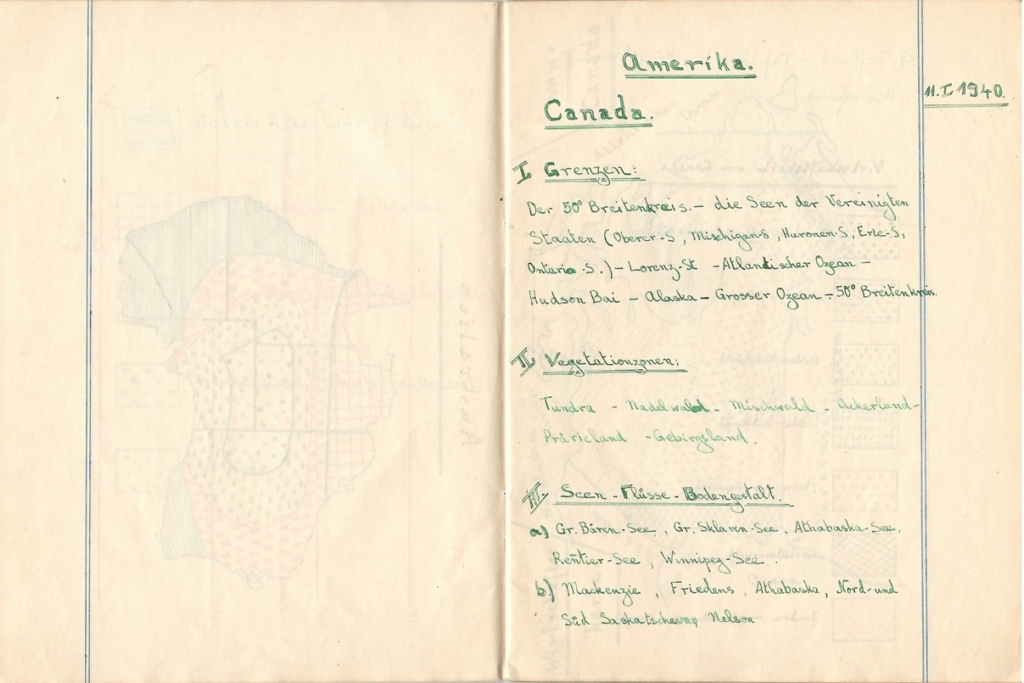 Amerika.
11.I.1940.
Canada.
I. Grenzen:
Der 50° Breitenkreis. – die Seen der Vereinigten
Staaten (Oberer-S, Mischigan-S, Huronen-S, Erie-S,
Ontario-S.) – Lorenz-St - Atlantischer Ozean –
Hudson Bai – Alaska – Grosser Ozean – 50° Breitenkreis.
II. Vegetationzonen:
Tundra - Nadelwald - Mischwald - Ackerland -
Prärieland - Gebirgsland.
III. Seen - Flüsse - Bodengestalt.
a) Gr. Bären-See, Gr. Sklaven-See, Athabaska-See,
Rentier-See, Winnipeg-See.
b.) Mackenzie, Friedens, Athabaska, Nord- und
Süd Saskatschewan, Nelson